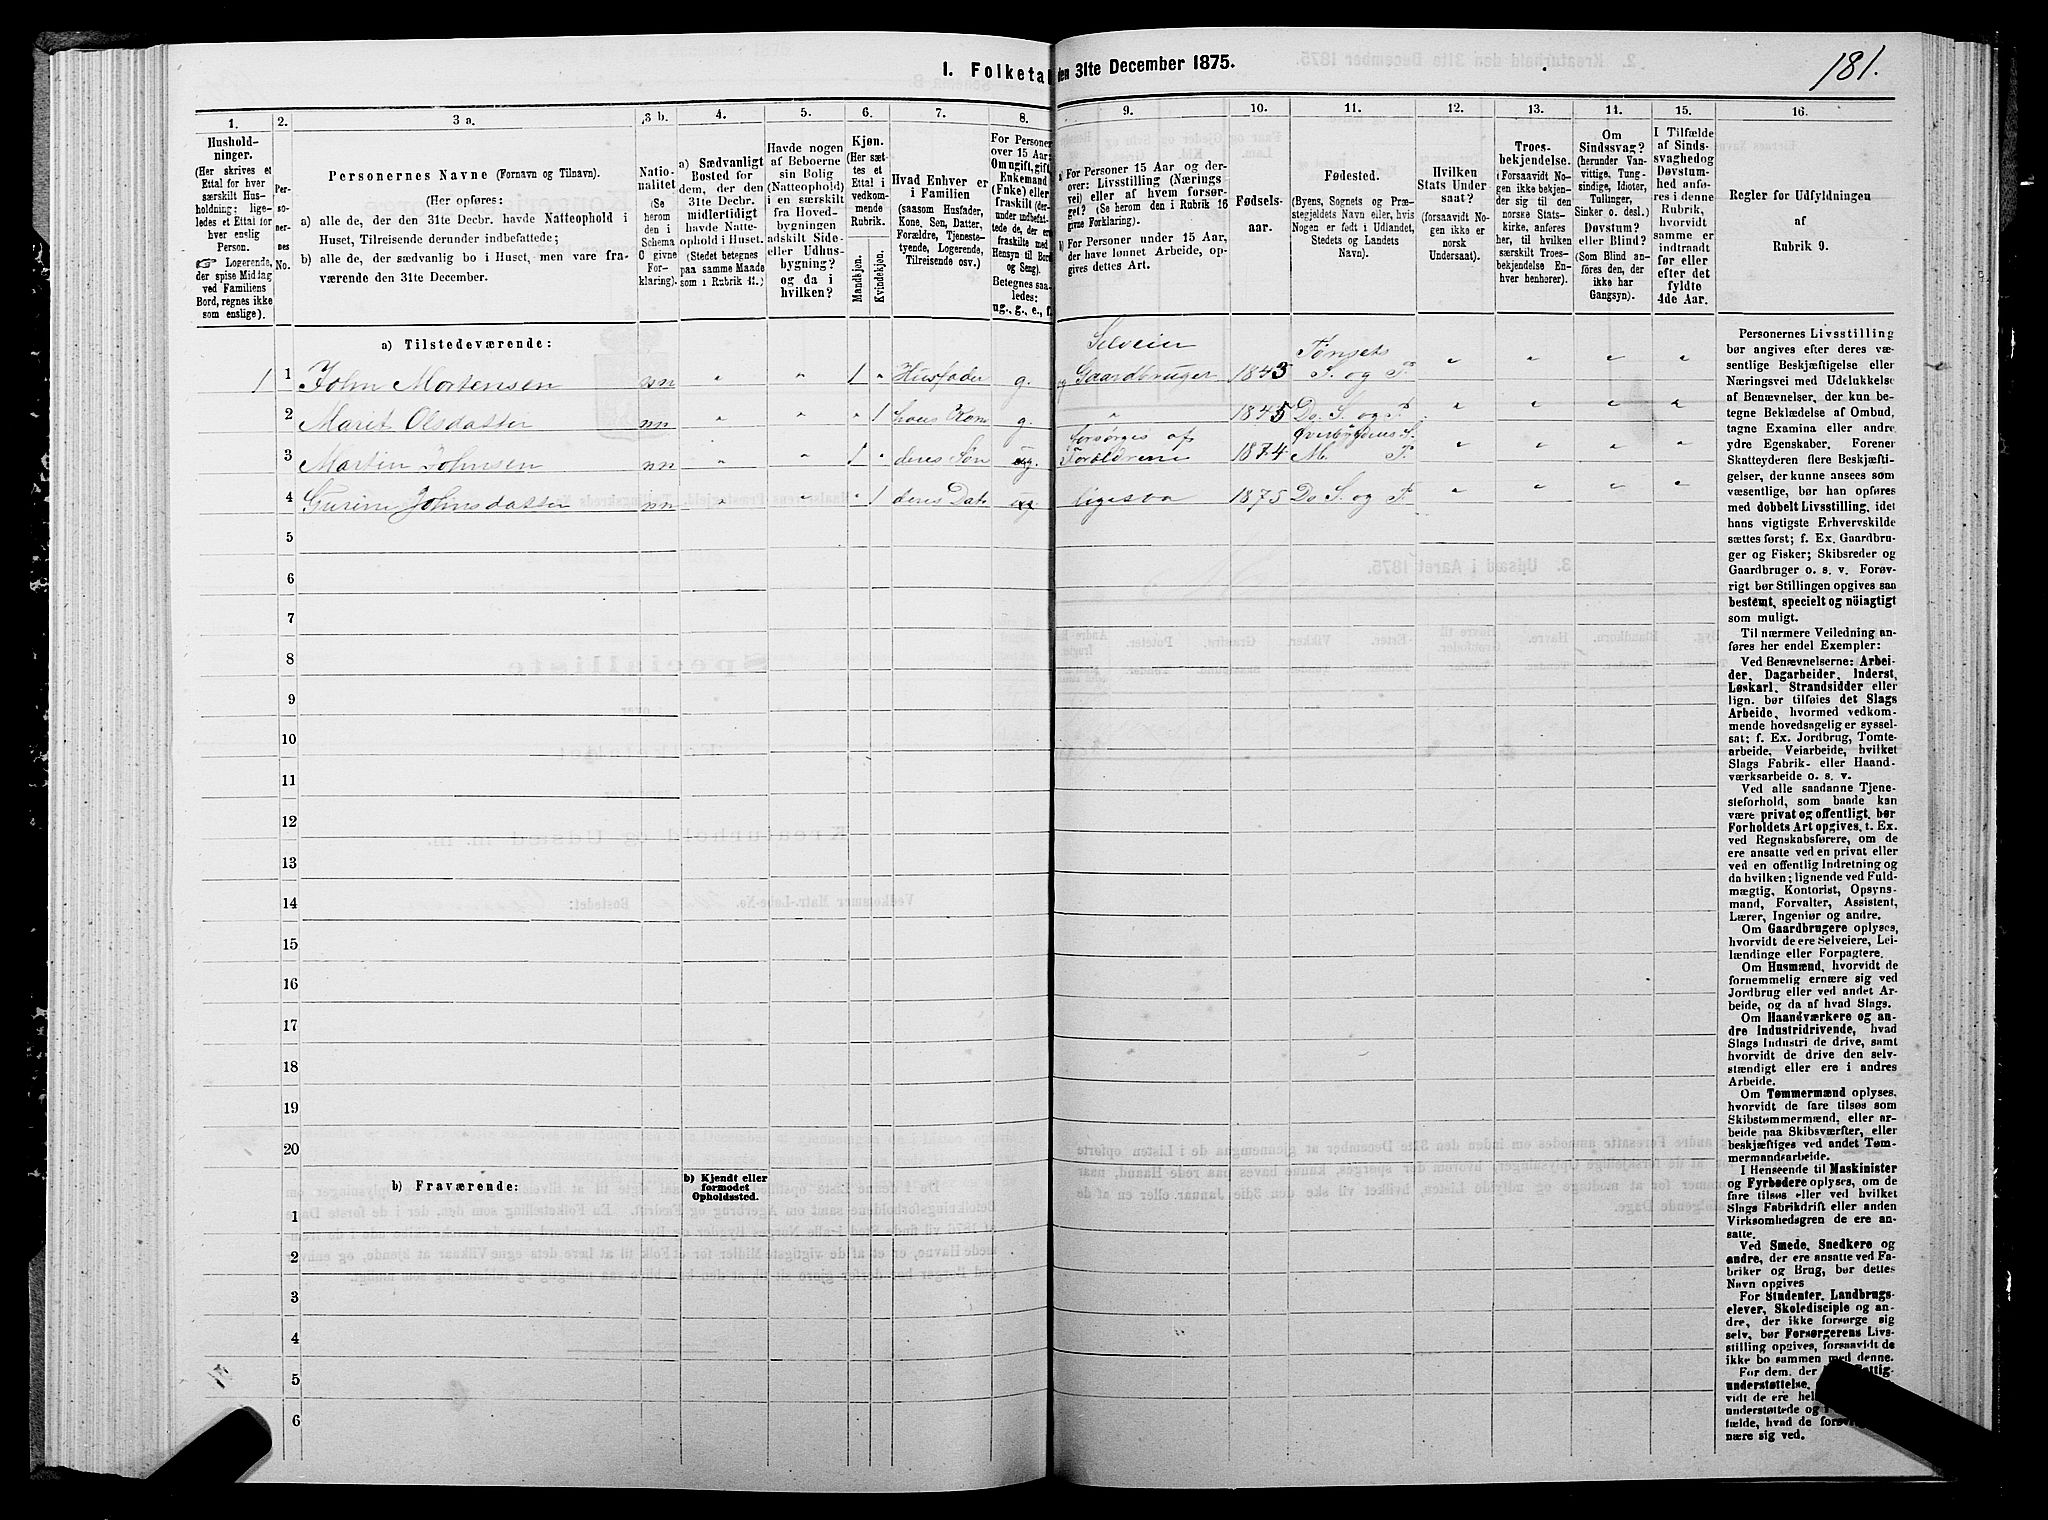 181.
I. Folketal den 31te December 1875.
1. 2. 3 a. 3 b. 4. 5. 6. 7. 8. 9. 10. 11. 12. 13. 14. 15. 16.
Hushold-
ninger.
(Her skrives et
Ettal for hver
særskilt Hus-
holdning; lige-
ledes et Ettal for
hver enslig
Person.
☞ Logerende,
der spise Middag
ved Familiens
Bord, regnes ikke
som enslige).
Per-
so-
ner-
nes
No.
Personernes Navne (Fornavn og Tilnavn).
(Her opføres:
a) alle de, der den 31te Decbr. havde Natteophold i
Huset, Tilreisende derunder indbefattede;
b) alle de, der sædvanlig bo i Huset, men vare fra-
værende den 31te December.
Natio-
nalitet
(Se
herom
den i
Schema
C givne
For-
klaring).
a) Sædvanligt
Bosted for
dem, der den
31te Decbr.
midlertidigt
havde Natte-
ophold i Huset.
(Stedet betegnes
paa samme Maade
som i Rubrik 11.)
Havde nogen
af Beboerne
sin Bolig
(Natteophold)
i en særskilt
fra Hoved-
bygningen
adskilt Side-
eller Udhus-
bygning?
og da i
hvilken?
Kjøn.
(Her sæt-
tes et
Ettal i
vedkom-
mende
Rubrik.
Mandkjøn.
Kvindekjøn.
Hvad Enhver er
i Familien
(saasom Husfader,
Kone, Søn, Datter,
Forældre, Tjeneste-
tyende, Logerende,
Tilreisende osv.)
For Personer
over 15 Aar:
Om ugift, gift,
Enkemand
(Enke) eller
fraskilt (der-
under indbefat-
tede de, der ere
fraskilte med
Hensyn til Bord
og Seng).
Betegnes saa-
ledes:
ug., g., e., f.
a) For Personer 15 Aar og der-
over: Livsstilling (Nærings-
vei) eller af hvem forsør-
get? (Se herom den i Rubrik 16
givne Forklaring).
b) For Personer under 15 Aar,
der have lønnet Arbeide, op-
gives dettes Art.
Fødsels-
aar.
Fødested.
(Byens, Sognets og Præ-
stegjeldets Navn eller, hvis
Nogen er født i Udlandet,
Stedets og Landets
Navn).
Hvilken
Stats Under-
saat?
(forsaavidt No-
gen ikke er
norsk
Undersaat).
Troes-
bekjendelse.
(Forsaavidt No-
gen ikke bekjen-
der sig til den
norske Stats-
kirke, anføres
her, til hvilken
særskilt Troes-
bekjendelse En-
hver henhører).
Om
Sindssvag?
(herunder Van-
vittige, Tung-
sindige, Idioter,
Tullinger,
Sinker o. desl.)
Døvstum?
eller Blind?
(Som Blind an-
føres den, der
ikke har
Gangsyn).
I Tilfælde
af Sinds-
svaghed og
Døvstum-
hed anfø-
res i denne
Rubrik,
hvorvidt
samme er
indtraadt
før eller
efter det
fyldte
4de Aar.
Regler for Udfyldningen
af
Rubrik 9.
a) Tilstedeværende:
1 1 John Mortensen nn " " 1 " Husfader g. Selveier og Gaardbruger 1843 Tønsets S. og P. " " " "
2 Marit Olsdatter nn " " " 1 hans Kone g. " 1845 Do. S. og P. " " " "
3 Martin Johnsen nn " " 1 " deres Søn ug. Forsørges af Forældrene 1874 Øverbygdens S. M. P. " " " "
4 Gurine Johnsdatter nn " " " 1 deres Dat. ug. ligesaa 1875 Do S. og P. " " " "
5
6
7
8
9
10
11
12
13
14
15
16
17
18
19
20
b) Fraværende:
b) Kjendt eller
formodet
Opholdssted.
1
2
3
4
5
6
Personernes Livsstilling
bør angives efter deres væ-
sentlige Beskjæftigelse eller
Næringsvei med Udelukkelse
af Benævnelser, der kun be-
tegne Beklædelse af Ombud,
tagne Examina eller andre
ydre Egenskaber. Forener
Skatteyderen flere Beskjæfti-
gelser, der kunne ansees som
væsentlige, bør han opføres
med dobbelt Livsstilling, idet
hans vigtigste Erhvervskilde
sættes først; f. Ex. Gaardbru-
ger og Fisker; Skibsreder og
Gaardbruger o. s. v. Forøv-
rigt bør Stillingen opgives saa
bestemt, specielt og nöiagtigt
som muligt.
Til nærmere Veiledning an-
føres her endel Exempler:
Ved Benævnelserne: Arbei-
der, Dagarbeider, Inderst,
Løskarl, Strandsidder eller
lign. bør tilføies det Slags
Arbeide, hvormed vedkom-
mende hovedsagelig er syssel-
sat; f. Ex. Jordbrug, Tomte-
arbeide, Veiarbeide, hvilket
Slags Fabrik- eller Haand-
værksarbeide o. s. v.
Ved alle saadanne Tjene-
steforhold, som baade kan
være privat og offentligt, bør
Forholdets Art opgives, t. Ex.
ved Regnskabsførere, om de
ere ansatte ved en privat eller
ved en offentlig Indretning og
da hvilken; lignende ved Fuld-
mægtig, Kontorist, Opsyns-
mand, Forvalter, Assistent,
Lærer, Ingeniør og andre.
Om Gaardbrugere oplyses,
hvorvidt de ere Selveiere, Lei-
lændinge eller Forpagtere.
Om Husmænd, hvorvidt de
fornemmelig ernære sig ved
Jordbrug eller ved andet Ar-
beide, og da af hvad Slags.
Om Haandværkere og an-
dre Industridrivende, hvad
Slags Industri de drive, samt
hvorvidt de drive den selv-
stændigt eller ere i andres
Arbeide.
Om Tømmermænd oplyses,
hvorvidt de fare tilsøs som
Skibstømmermænd, eller ar-
beide paa Skibsværfter, eller
beskjæftiges ved andet Tøm-
mermandsarbeide.
I Henseende til Maskinister
og Fyrbødere oplyses, om de
fare tilsøs eller ved hvilket
Slags Fabrikdrift eller anden
Virksomhedsgren de ere an-
satte.
Ved Smede, Snedkere og
andre, der ere ansatte ved Fa-
briker og Brug, bør dettes
Navn opgives
For Studenter, Landbrugs-
elever, Skoledisciple og an-
dre, der ikke forsørge sig
selv, bør Forsørgerens Livs-
stilling opgives, forsaavidt de
ikke bo sammen med denne.
For dem, der
understøttelse,
vidt de ere hel
understøttede og
fælde, hvad de
nære sig ved.